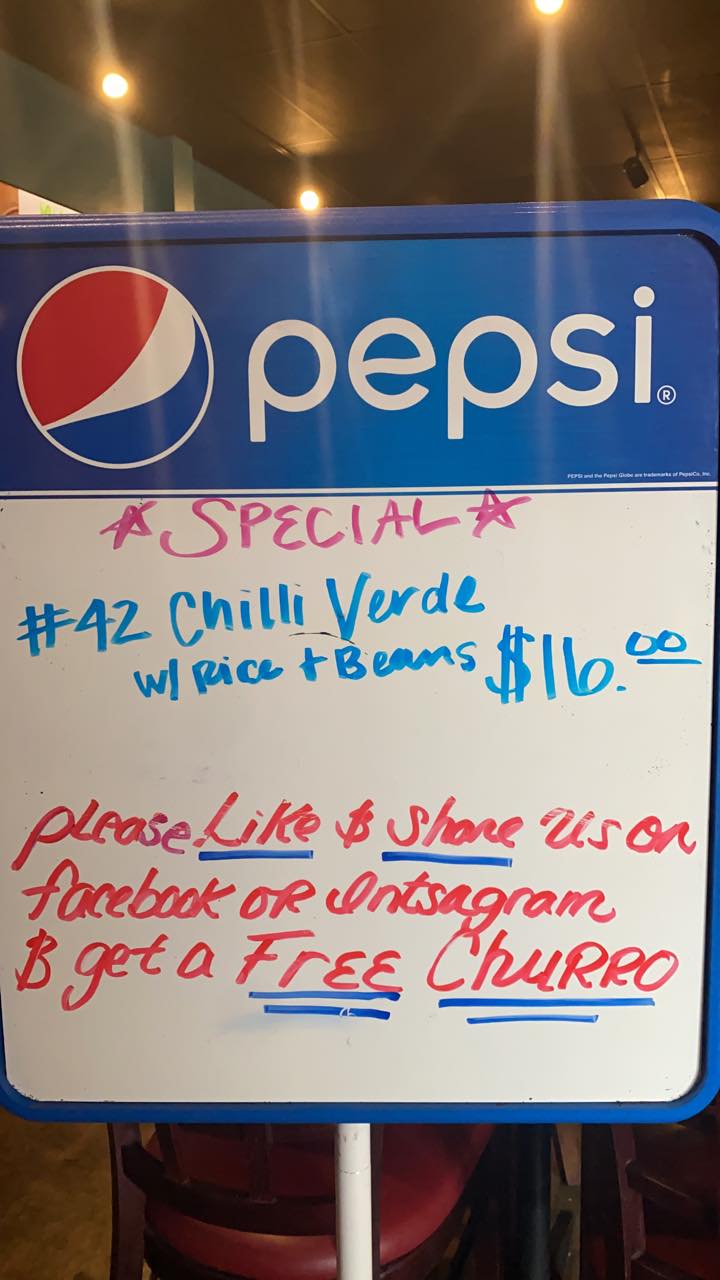 pepsi®
PEPSI and the Pepsi Globe are trademarks of PepsiCo, Inc.
SPECIAL
#42 Chilli Verde
w/ Rice + Beans $16.00
please Like & Share us on
facebook OR Intsagram
& get a FREE ChuRRO